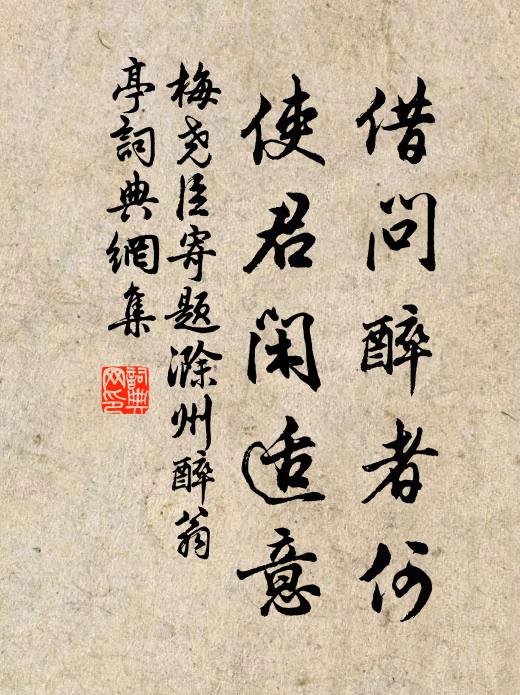 借问醉者何
使君闲适意
梅尧臣寄题滁州醉翁
亭詞典網集
詞典
网印